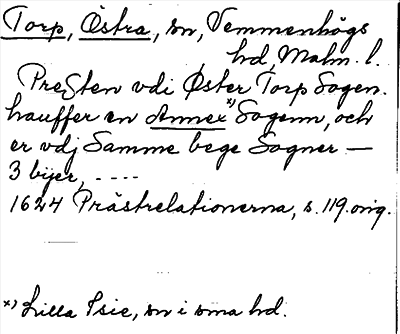 Torp, Östra, sn, Vemmenhögs
hd, Malm. l.
Presten vdi Øster Torp Sogen.
hauffer en Annex *) Sogenn, och
er vdj Samme bege Sogner —
3 bijer, - - - -
1624 Prästrelationerna, s. 119. orig.
*) Lilla Isie, sn i sma hd.